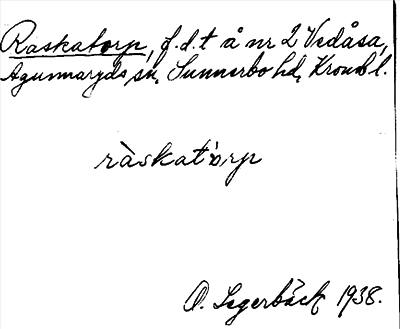 Raskatorp, f.d.t å nr 2 Vedåsa,
Agunnaryds sn, Sunnerbo hd, Kronob l.
ràskatòrp
O. Lagerbäck 1938.